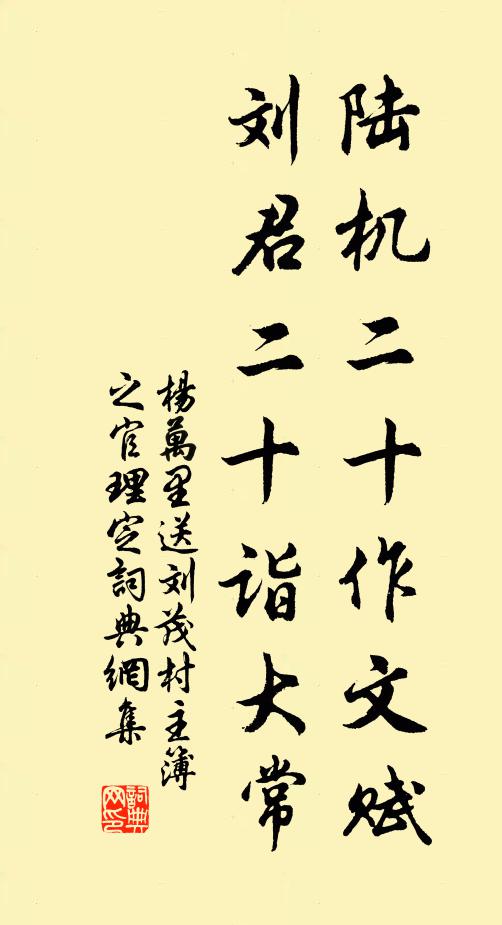 陆机二十作文赋
刘君二十诣大常
楊萬里送刘茂村主簿
之官理定詞典網集
詞典
网印